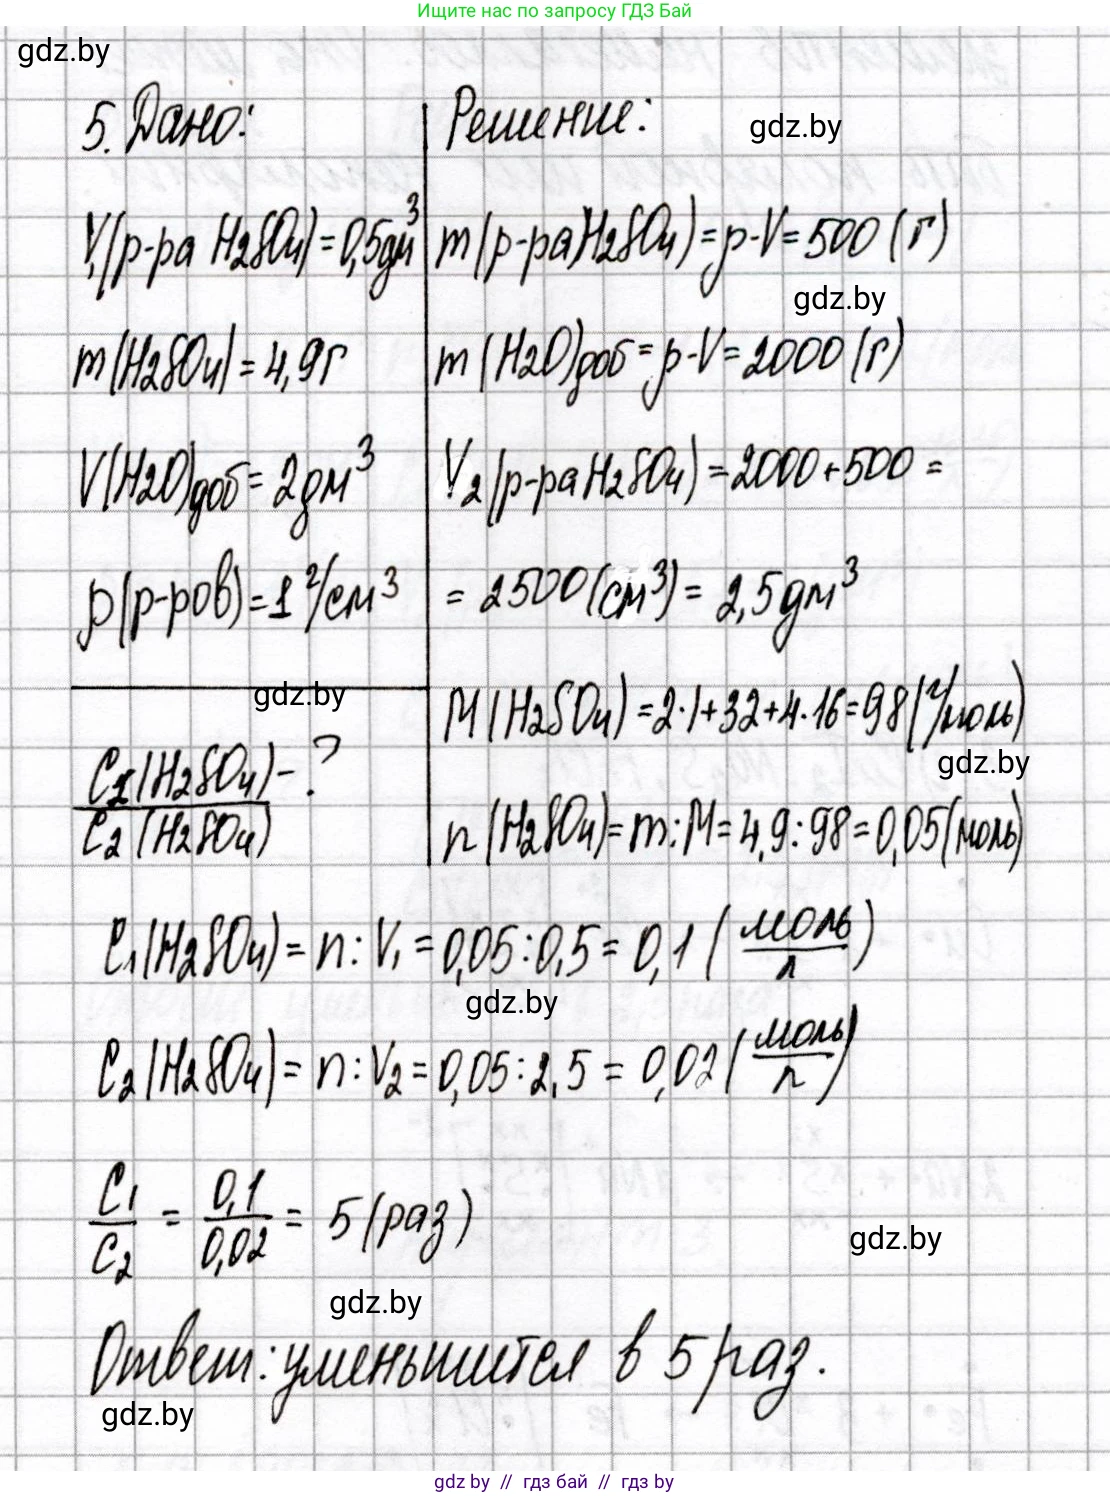 Ищите нас по запросу ГДЗ Бай
gdz.by
5. Дано:
V₁(р-ра H2SO4)=0,5дм³
m(H2SO4)=4,9г
V(H2O)доб=2дм³
ρ(р-ров)=1г/см³
gdz.by
C1(H2SO4)/C2(H2SO4) - ?
Решение:
gdz.by
m(р-ра H2SO4)=ρ·V=500(г)
gdz.by
m(H2O)доб=ρ·V=2000(г)
V2(р-ра H2SO4)=2000+500=
=2500(см³)=2,5дм³
M(H2SO4)=2·1+32+4·16=98(г/моль)
gdz.by
n(H2SO4)=m:M=4,9:98=0,05(моль)
C1(H2SO4)=n:V1=0,05:0,5=0,1(моль/л)
gdz.by
C2(H2SO4)=n:V2=0,05:2,5=0,02(моль/л)
C1/C2=0,1/0,02=5(раз)
gdz.by
gdz.by
Ответ: уменьшится в 5 раз.
gdz.by
gdz by // гдз бай // гдз by